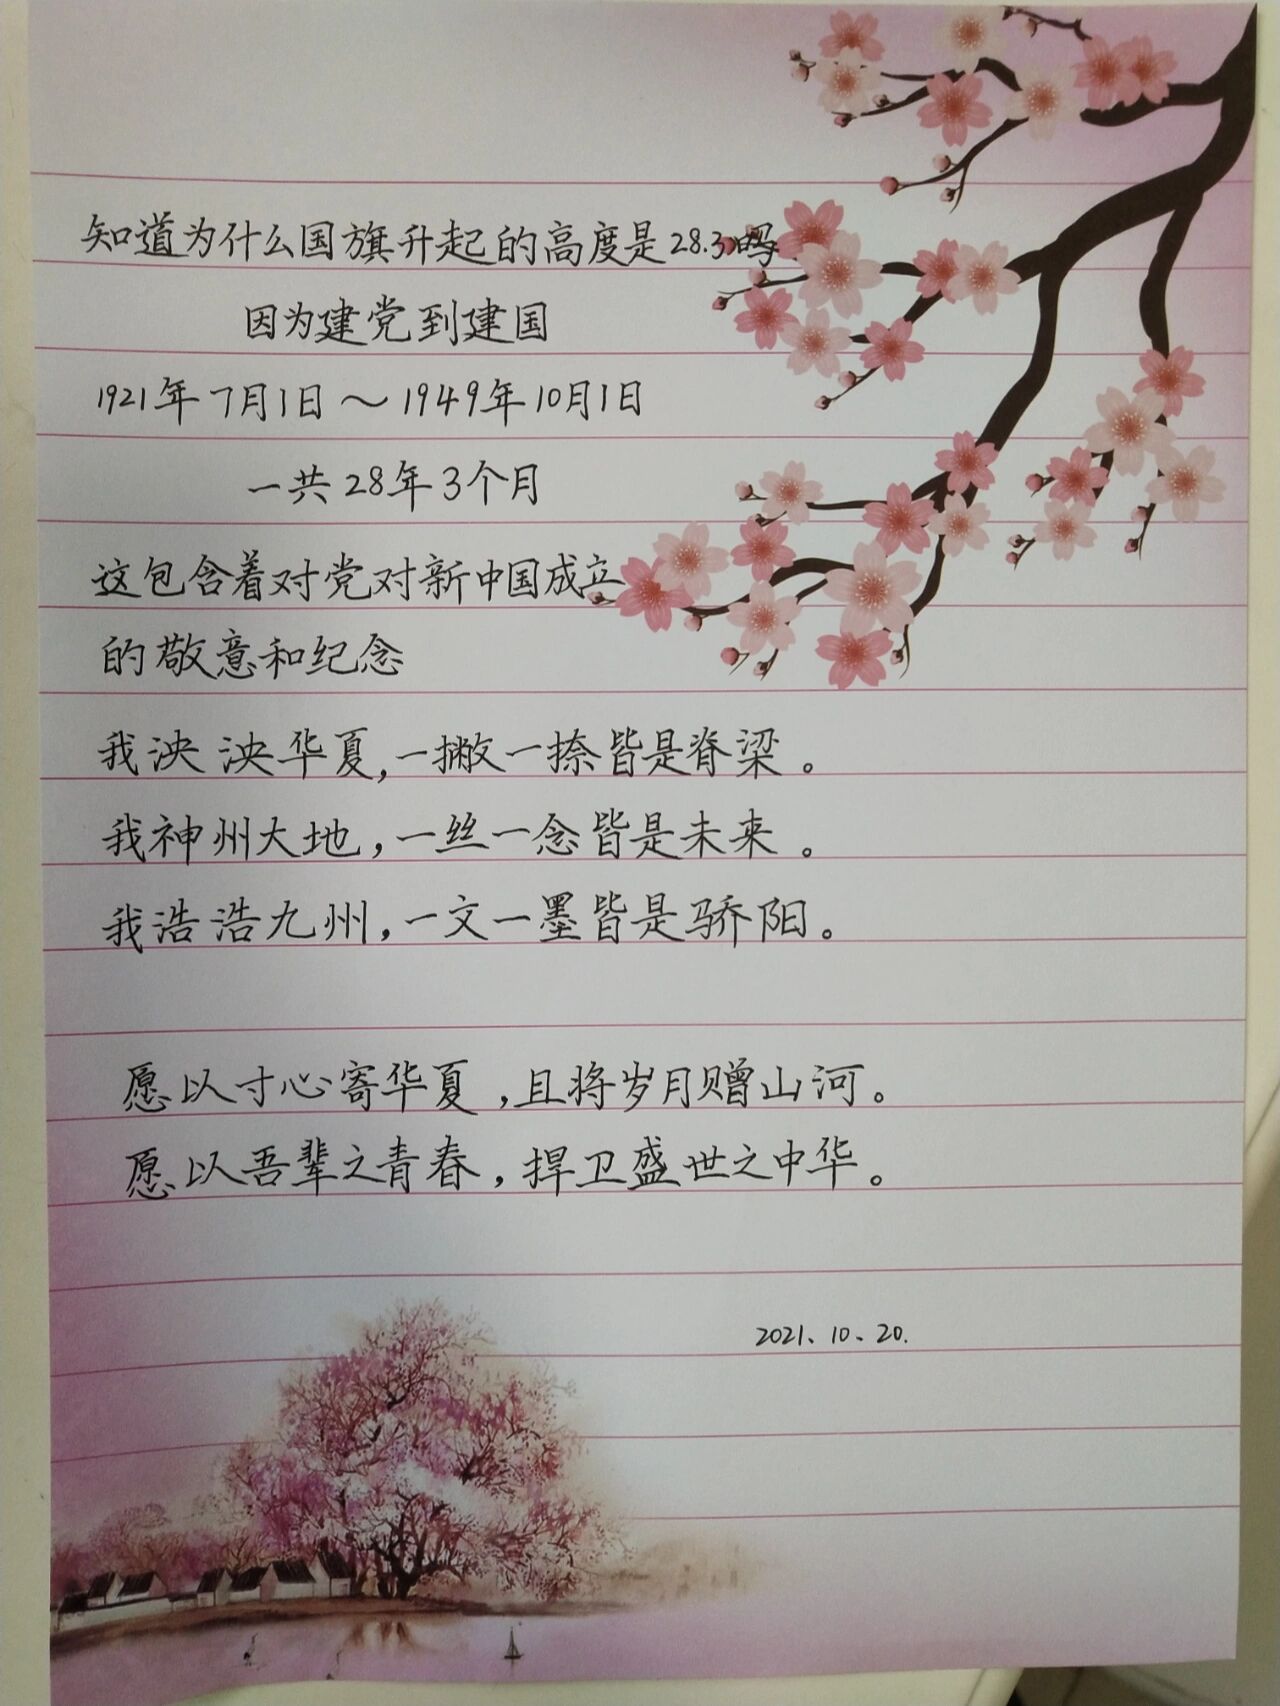 知道为什么国旗升起的高度是28.3吗
因为建党到建国
1921年7月1日～1949年10月1日
一共28年3个月
这包含着对党对新中国成立
的敬意和纪念
我泱泱华夏,一撇一捺皆是脊梁。
我神州大地,一丝一念皆是未来。
我浩浩九州,一文一墨皆是骄阳。
愿以寸心寄华夏,且将岁月赠山河。
愿以吾辈之青春,捍卫盛世之中华。
2021、10、20.